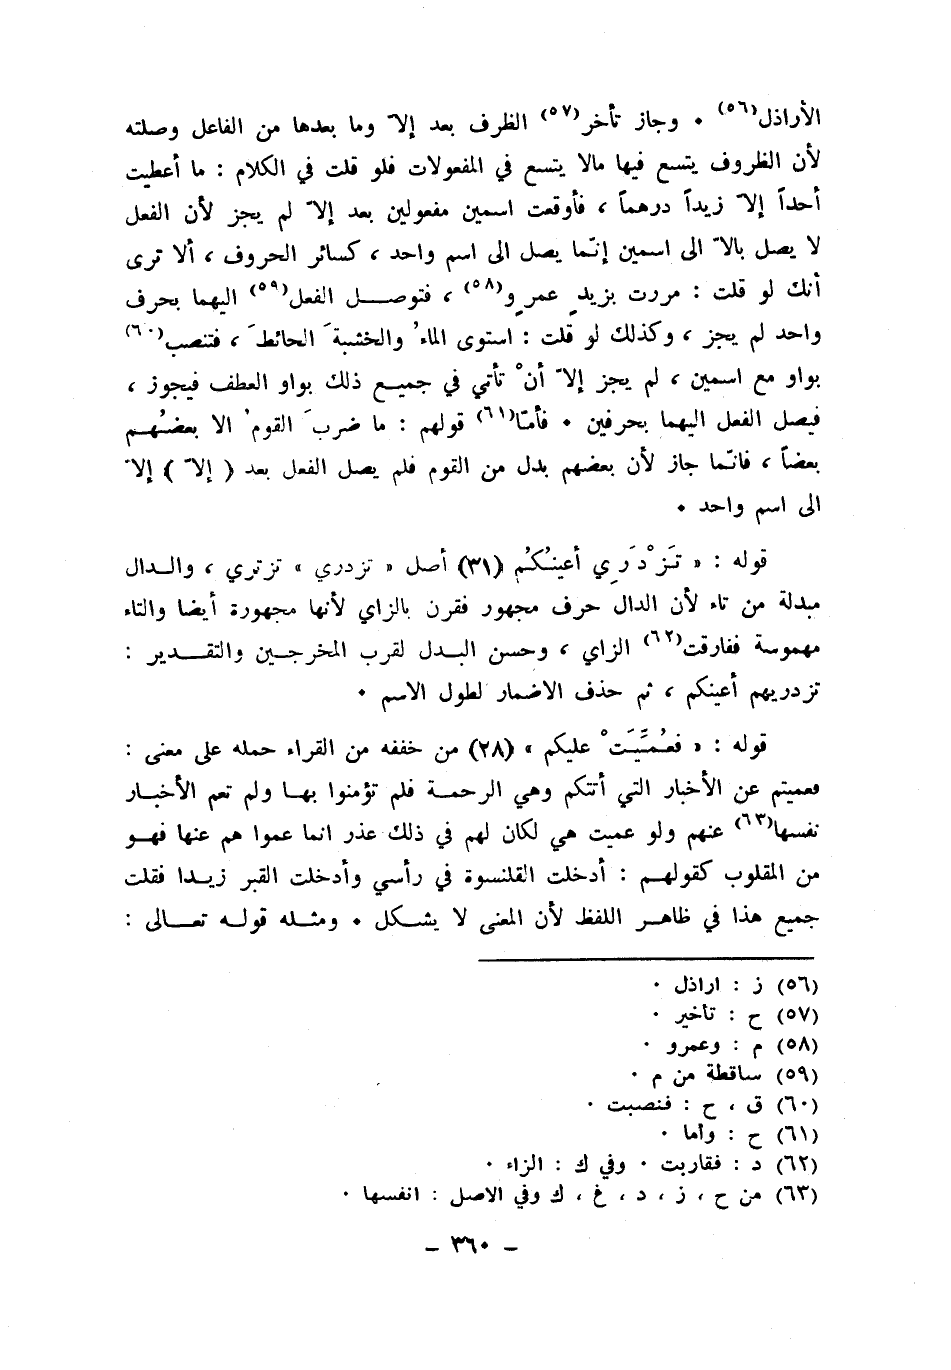 الأراذل(٥٦) ٠ وجاز تأخر(٥٧) الظرف بعد إلاّ وما بعدها من الفاعل وصلته
لأن الظروف يتسع فيها مالا يتسع في المفعولات فلو قلت في الكلام : ما أعطيت
أحداً إلاّ زيداً درهماً ، فأوقعت اسمين مفعولين بعد إلاّ لم يجز لأن الفعل
لا يصل بالاّ الى اسمين إنّما يصل الى اسم واحد ، كسائر الحروف ، ألا ترى
أنك لو قلت : مررت بزيدٍ عمرٍو(٥٨) ، فتوصل الفعل(٥٩) اليهما بحرف
واحد لم يجز ، وكذلك لو قلت : استوى الماءُ والخشبةَ الحائطَ ، فتنصب(٦٠)
بواو مع اسمين ، لم يجز إلاّ أنْ تأتي في جميع ذلك بواو العطف فيجوز ،
فيصل الفعل اليهما بحرفين ٠ فأمّا(٦١) قولهم : ما ضربَ القومُ الا بعضُهم
بعضاً ، فانّما جاز لأن بعضهم بدل من القوم فلم يصل الفعل بعد ( إلاّ ) إلاّ
الى اسم واحد ٠
قوله : « تَزْدَرِي أعينُكُم (٣١) أصل « تزدري » تزتري ، والدال
مبدلة من تاء لأن الدال حرف مجهور فقرن بالزاي لأنها مجهورة أيضا والتاء
مهموسة ففارقت(٦٢) الزاي ، وحسن البدل لقرب المخرجين والتقدير :
تزدريهم أعينكم ، ثم حذف الاضمار لطول الاسم ٠
قوله : « فعُمِّيَتْ عليكم » (٢٨) من خففه من القراء حمله على معنى :
فعميتم عن الأخبار التي أتتكم وهي الرحمة فلم تؤمنوا بها ولم تعم الأخبار
نفسها(٦٣) عنهم ولو عميت هي لكان لهم في ذلك عذر انما عموا هم عنها فهو
من المقلوب كقولهم : أدخلت القلنسوة في رأسي وأدخلت القبر زيدا فقلت
جميع هذا في ظاهر اللفظ لأن المعنى لا يشكل ٠ ومثله قوله تعالى :
(٥٦) ز : اراذل ٠
(٥٧) ح : تأخير ٠
(٥٨) م : وعمرو ٠
(٥٩) ساقطة من م ٠
(٦٠) ق ، ح : فنصبت ٠
(٦١) ح : وأما ٠
(٦٢) د : فقاربت ٠ وفي ك : الزاء ٠
(٦٣) من ح ، ز ، د ، غ ، ك وفي الاصل : انفسها ٠
– ٣٦٠ –